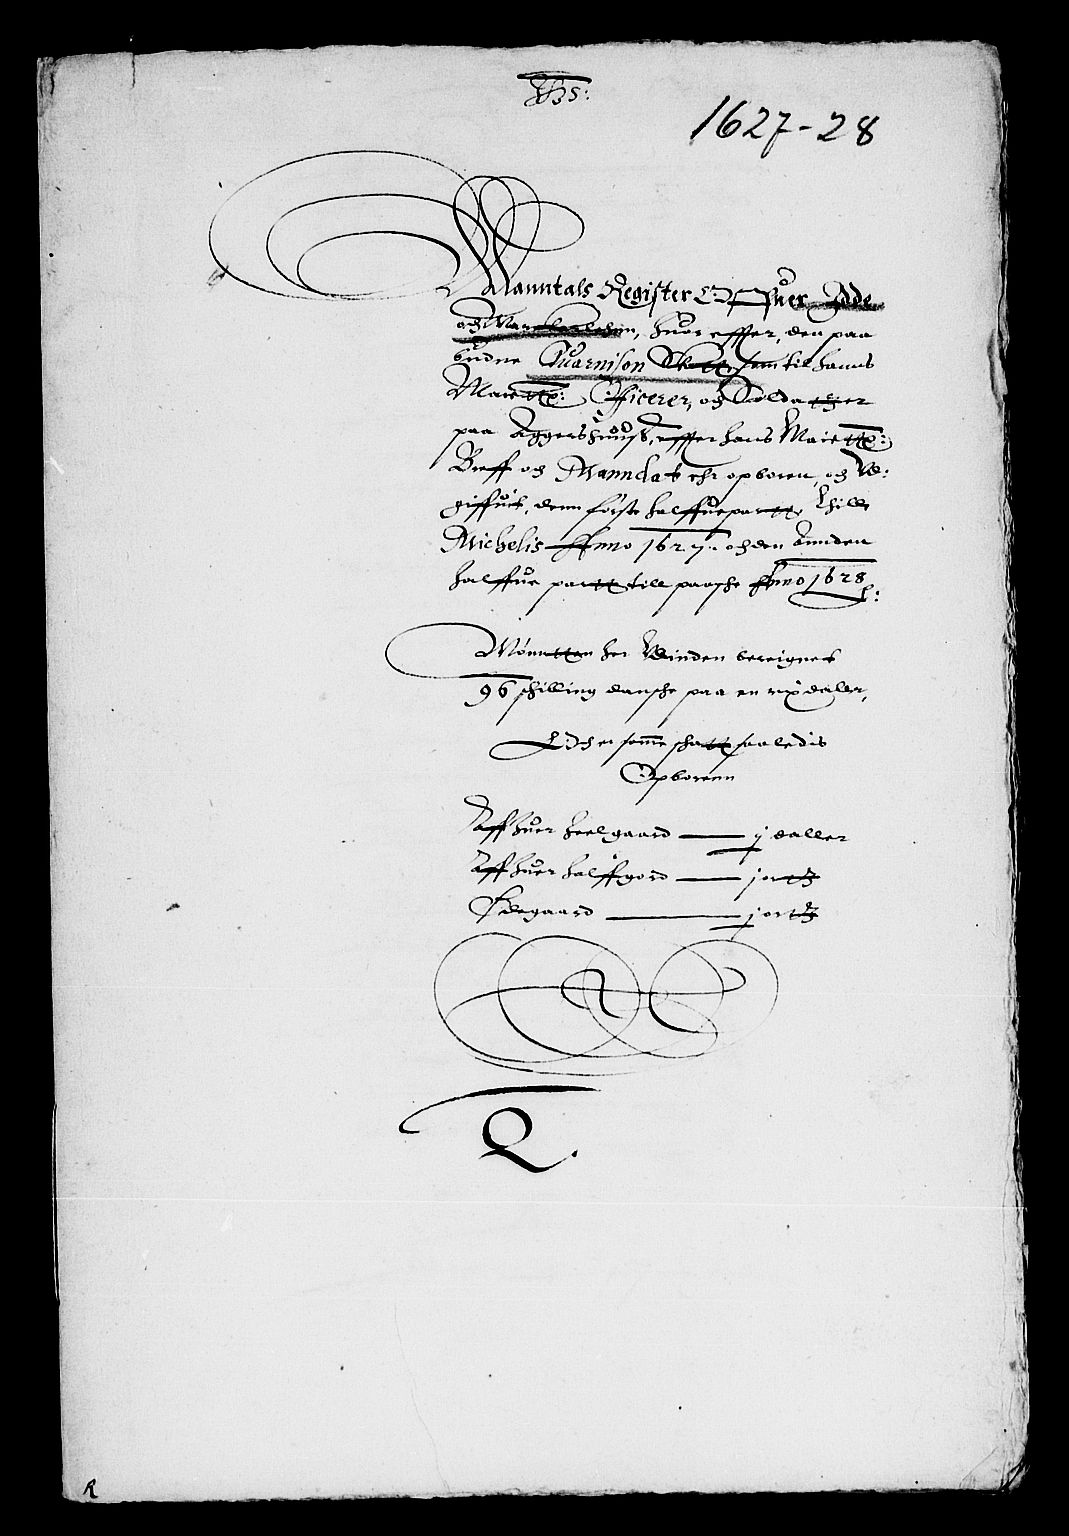 1627-28
Manntals Register Offuer Idde
och Marckerlehen, huor effter, den paa
budne Guarnison Skatt, som till hanns
Maietts: Officerer, och Soldather
paa Aggershuuss, effter hans Maietts:
Breff och Manndat ehr opboren, och W-
giffuit, denn førsste halffuepartt, thill
Michelis Anno 1627. och den Anden
halffue partt till paasche Anno 1628
Mønntten her Winden beregnet
96 schilling dansche paa en rix daller,
Och er somme schatt saaledis
Opborenn
Aff huer heelgaard — j daller
Aff huer halffgord — j ortt
Ødegaard — j ortt
R